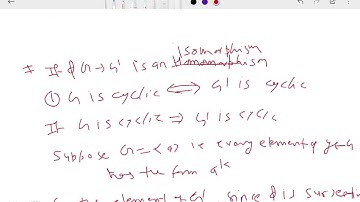 Isomorphism
* If φ G → G' is an Homomorphism
① G is cyclic ⟺ G' is cyclic
If G is cyclic ⇒ G' is cyclic
Suppose G = <a> ie every element of
has the form a^k
the element of G', since φ is surjective